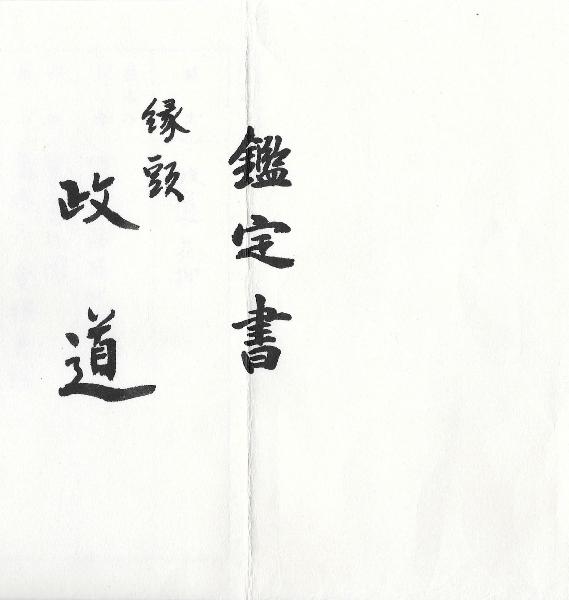 鑑定書
縁頭
政道